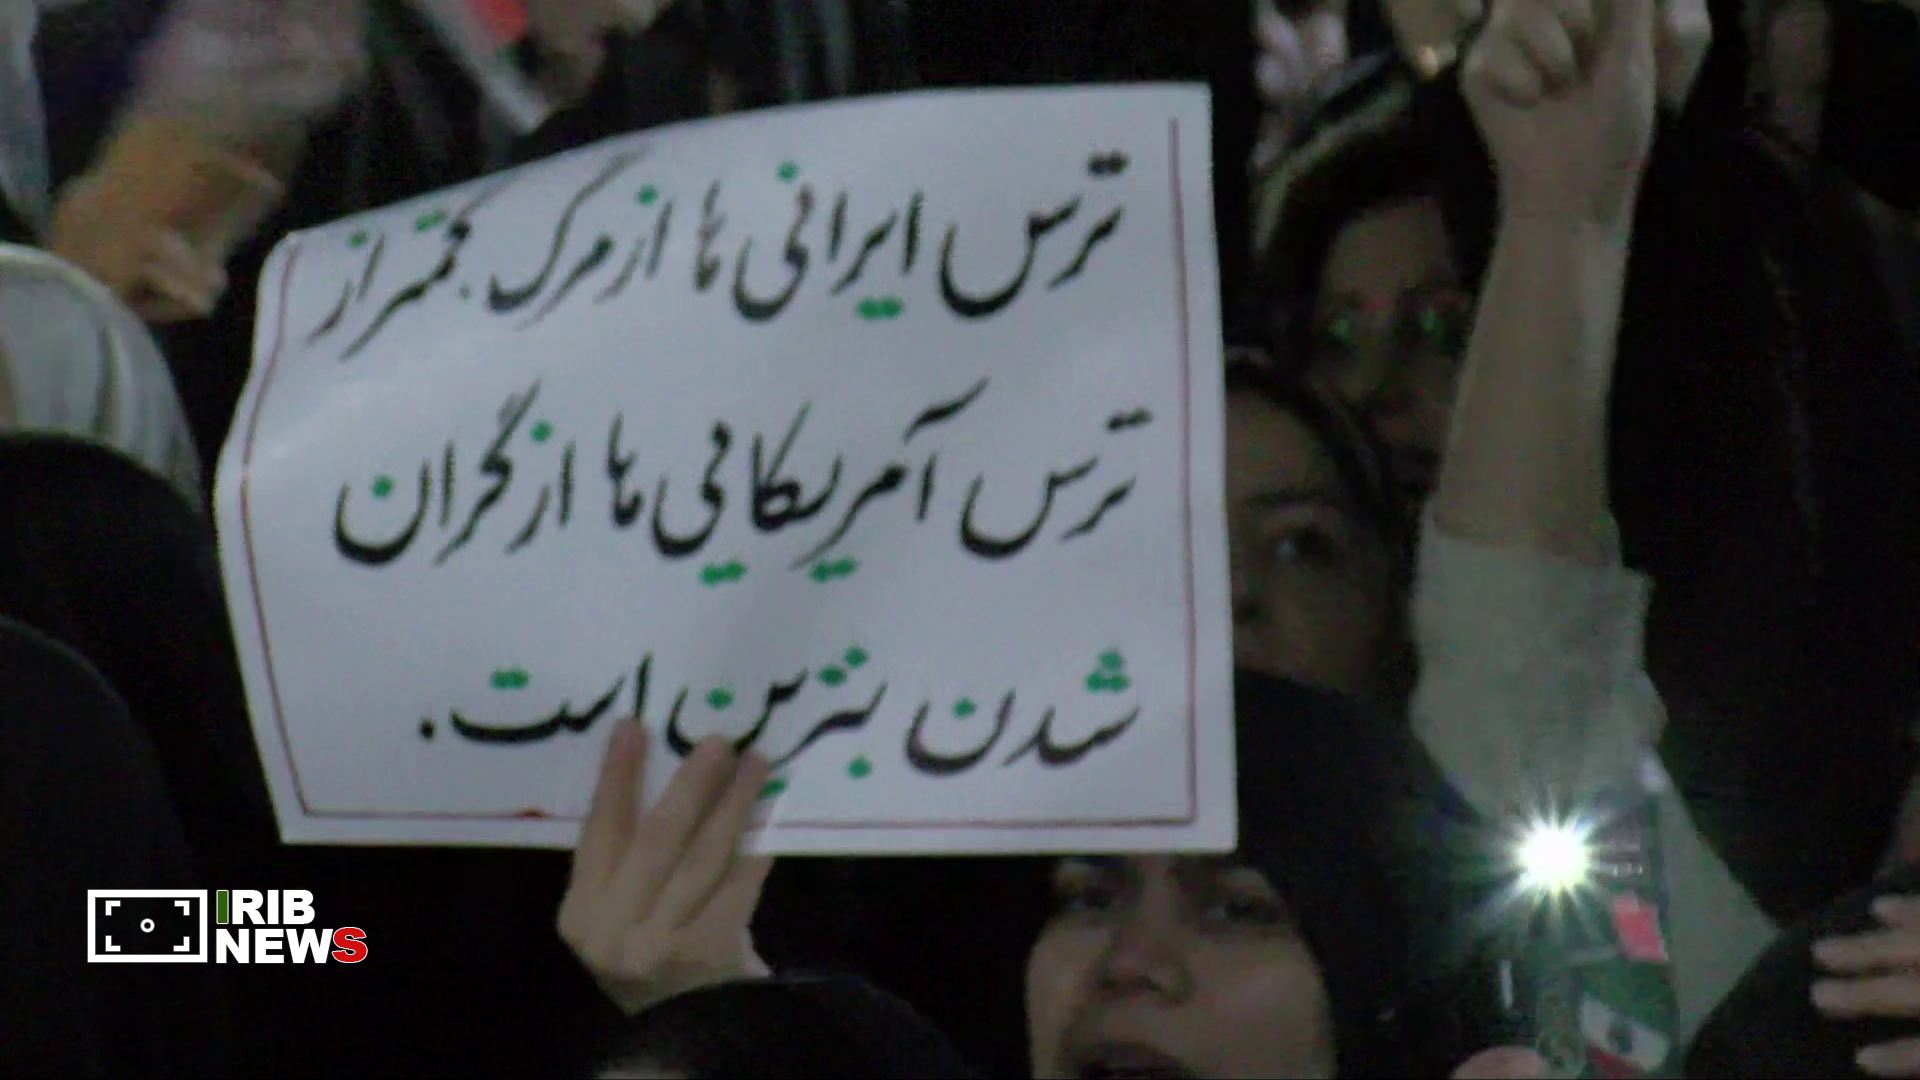 ترس ایرانی ها از مرگ، کمتر از
ترس آمریکایی ها از گران
شدن بنزین است.
IRIB
NEWS